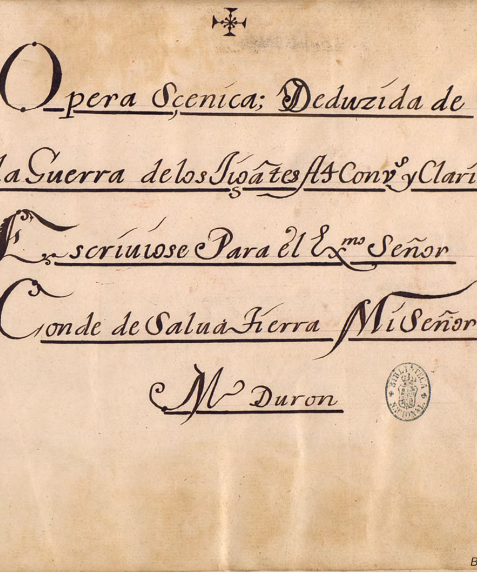 Opera Sçenica; Deduzida de
la Guerra de los Jigãtes A4 Conv.ˢ y Clarí
Escriuiose Para êl Exᵐᵒ Señor
Conde de Salua Tierra Mi Señor
Mᵒ Duron
BIBLIOTECA NACIONAL
B